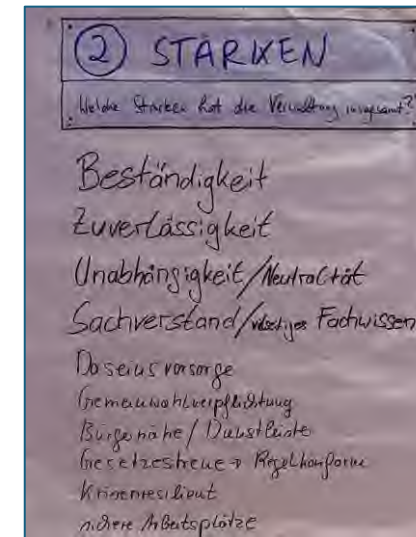 ② STÄRKEN
Welche Stärken hat die Verwaltung insgesamt?
Beständigkeit
Zuverlässigkeit
Unabhängigkeit/Neutralität
Sachverstand/vielseitiges Fachwissen
Daseinsvorsorge
Gemeinwohlverpflichtung
Bürgernähe/
Gesetzestreue → Regelkonform
Krisenresilient
sichere Arbeitsplätze